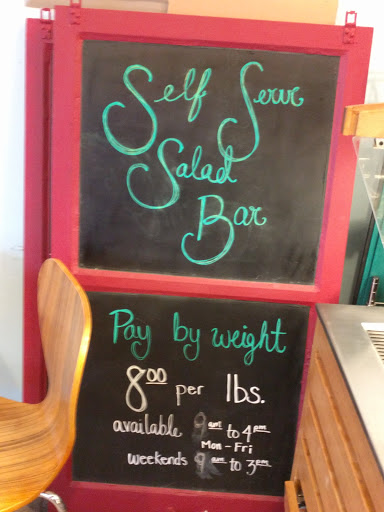 Self Serve
Salad
Bar
Pay by weight
8.00 per lbs.
available 9 am to 4 pm
Mon - Fri
weekends 9 am to 3 pm